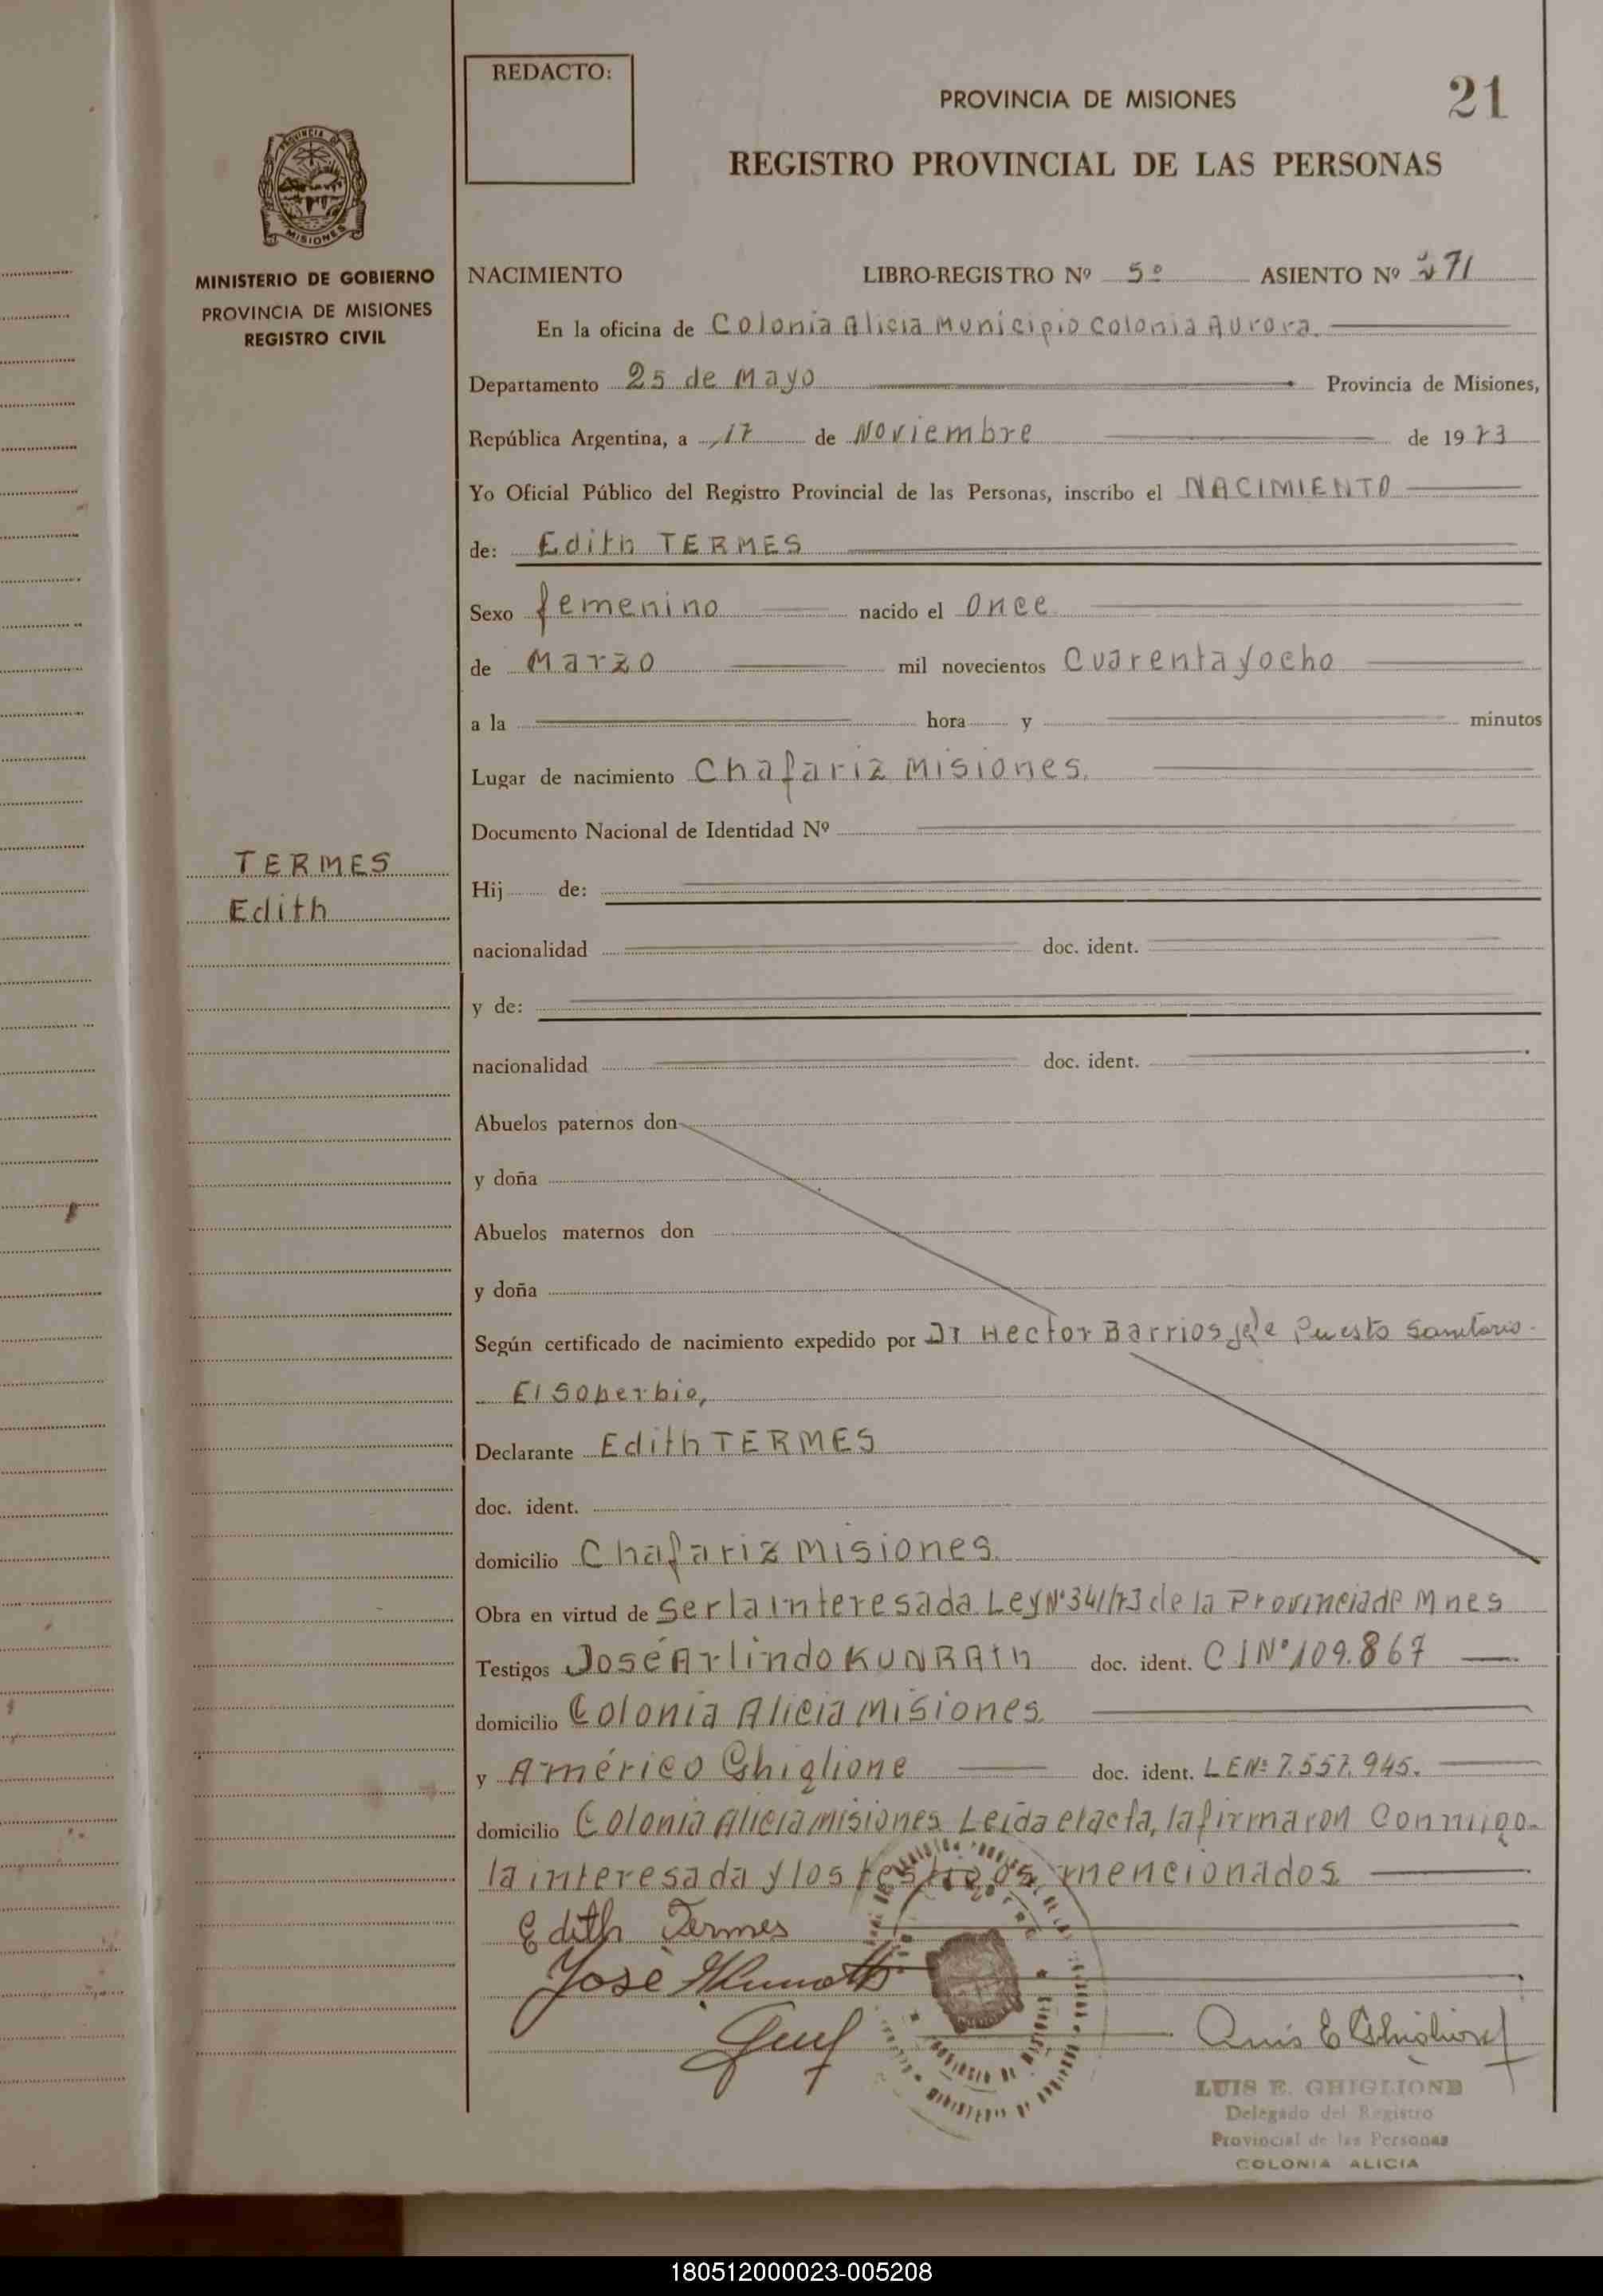 REDACTO:
PROVINCIA DE MISIONES
21
REGISTRO PROVINCIAL DE LAS PERSONAS
PROVINCIA DE
MISIONES
MINISTERIO DE GOBIERNO
PROVINCIA DE MISIONES
REGISTRO CIVIL
NACIMIENTO LIBRO-REGISTRO Nº 5º ASIENTO Nº 271
En la oficina de Colonia Alicia Municipio Colonia Aurora.
Departamento 25 de Mayo Provincia de Misiones,
República Argentina, a 17 de Noviembre de 1973
Yo Oficial Público del Registro Provincial de las Personas, inscribo el NACIMIENTO
de: Edith TERMES
Sexo femenino nacido el Once
de Marzo mil novecientos Cuarenta y ocho
a la hora y minutos
Lugar de nacimiento Chafariz Misiones.
Documento Nacional de Identidad Nº
TERMES
Edith
Hij de:
nacionalidad doc. ident.
y de:
nacionalidad doc. ident.
Abuelos paternos don
y doña
Abuelos maternos don
y doña
Según certificado de nacimiento expedido por Dr Hector Barrios jefe Puesto Sanitario
El Soberbio,
Declarante Edith TERMES
doc. ident.
domicilio Chafariz Misiones.
Obra en virtud de ser la interesada Ley Nº 341/73 de la Provincia de Mnes
Testigos José Arlindo KUNRATH doc. ident. C I Nº 109.867
domicilio Colonia Alicia Misiones.
y Américo Ghiglione doc. ident. LE Nº 7.557.945.
domicilio Colonia Alicia Misiones Leída el acta, la firmaron Conmigo
la interesada y los testigos mencionados
Edith Termes
José
Luis E Ghiglione
LUIS E. GHIGLIONE
Delegado del Registro
Provincial de las Personas
COLONIA ALICIA
180512000023-005208